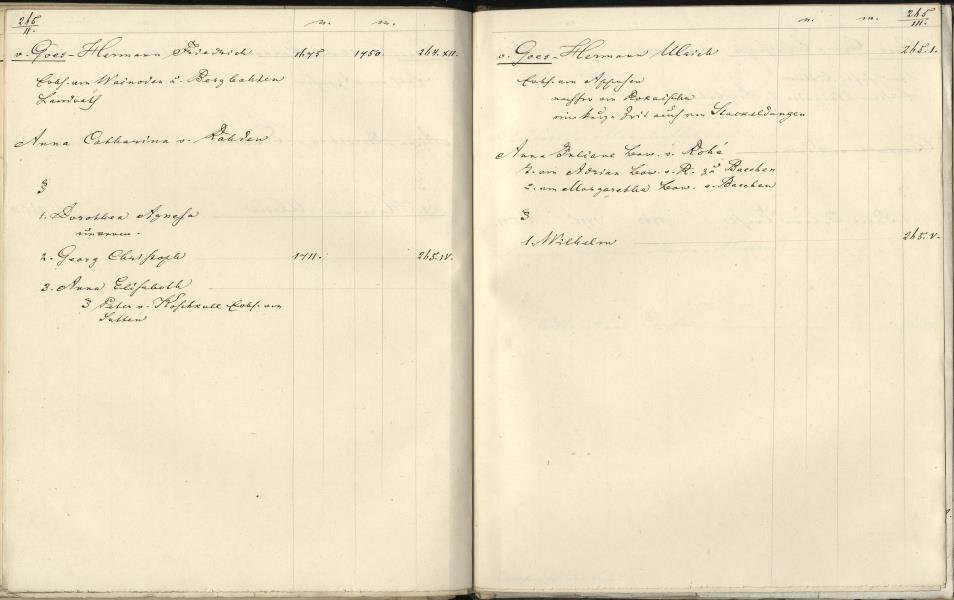 265
II.
n. m.
v. Goes-Hermann Friedrich 1675 1750. 264.XII.
Erbh. von Wainoden u. Bergbahten
Landrath
Anna Catharina v. Rahden
3
1. Dorothea Agnesa
2. Georg Christoph 1711. 265.IV.
3. Anna Elisabeth
3 Peter v. Koschkull Erbh. von
265
III.
n. m.
v. Goes-Hermann Ulrich 265.I.
Erbh. von
nachher von
eine kurze Zeit auch von Stackeldangen
Anna Juliane bar. v. Rohé
T. von Adrian bar. v. R. zu Bacchen
u. von Margaretha bar. v. Bacchen
3
1. Wilhelm 265.V.